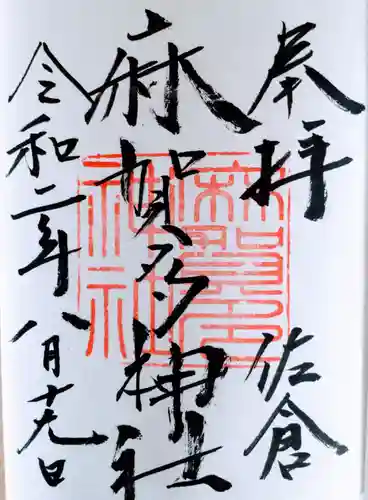 奉拝 佐倉
麻賀多神社
令和二年八月十九日
麻賀多神社